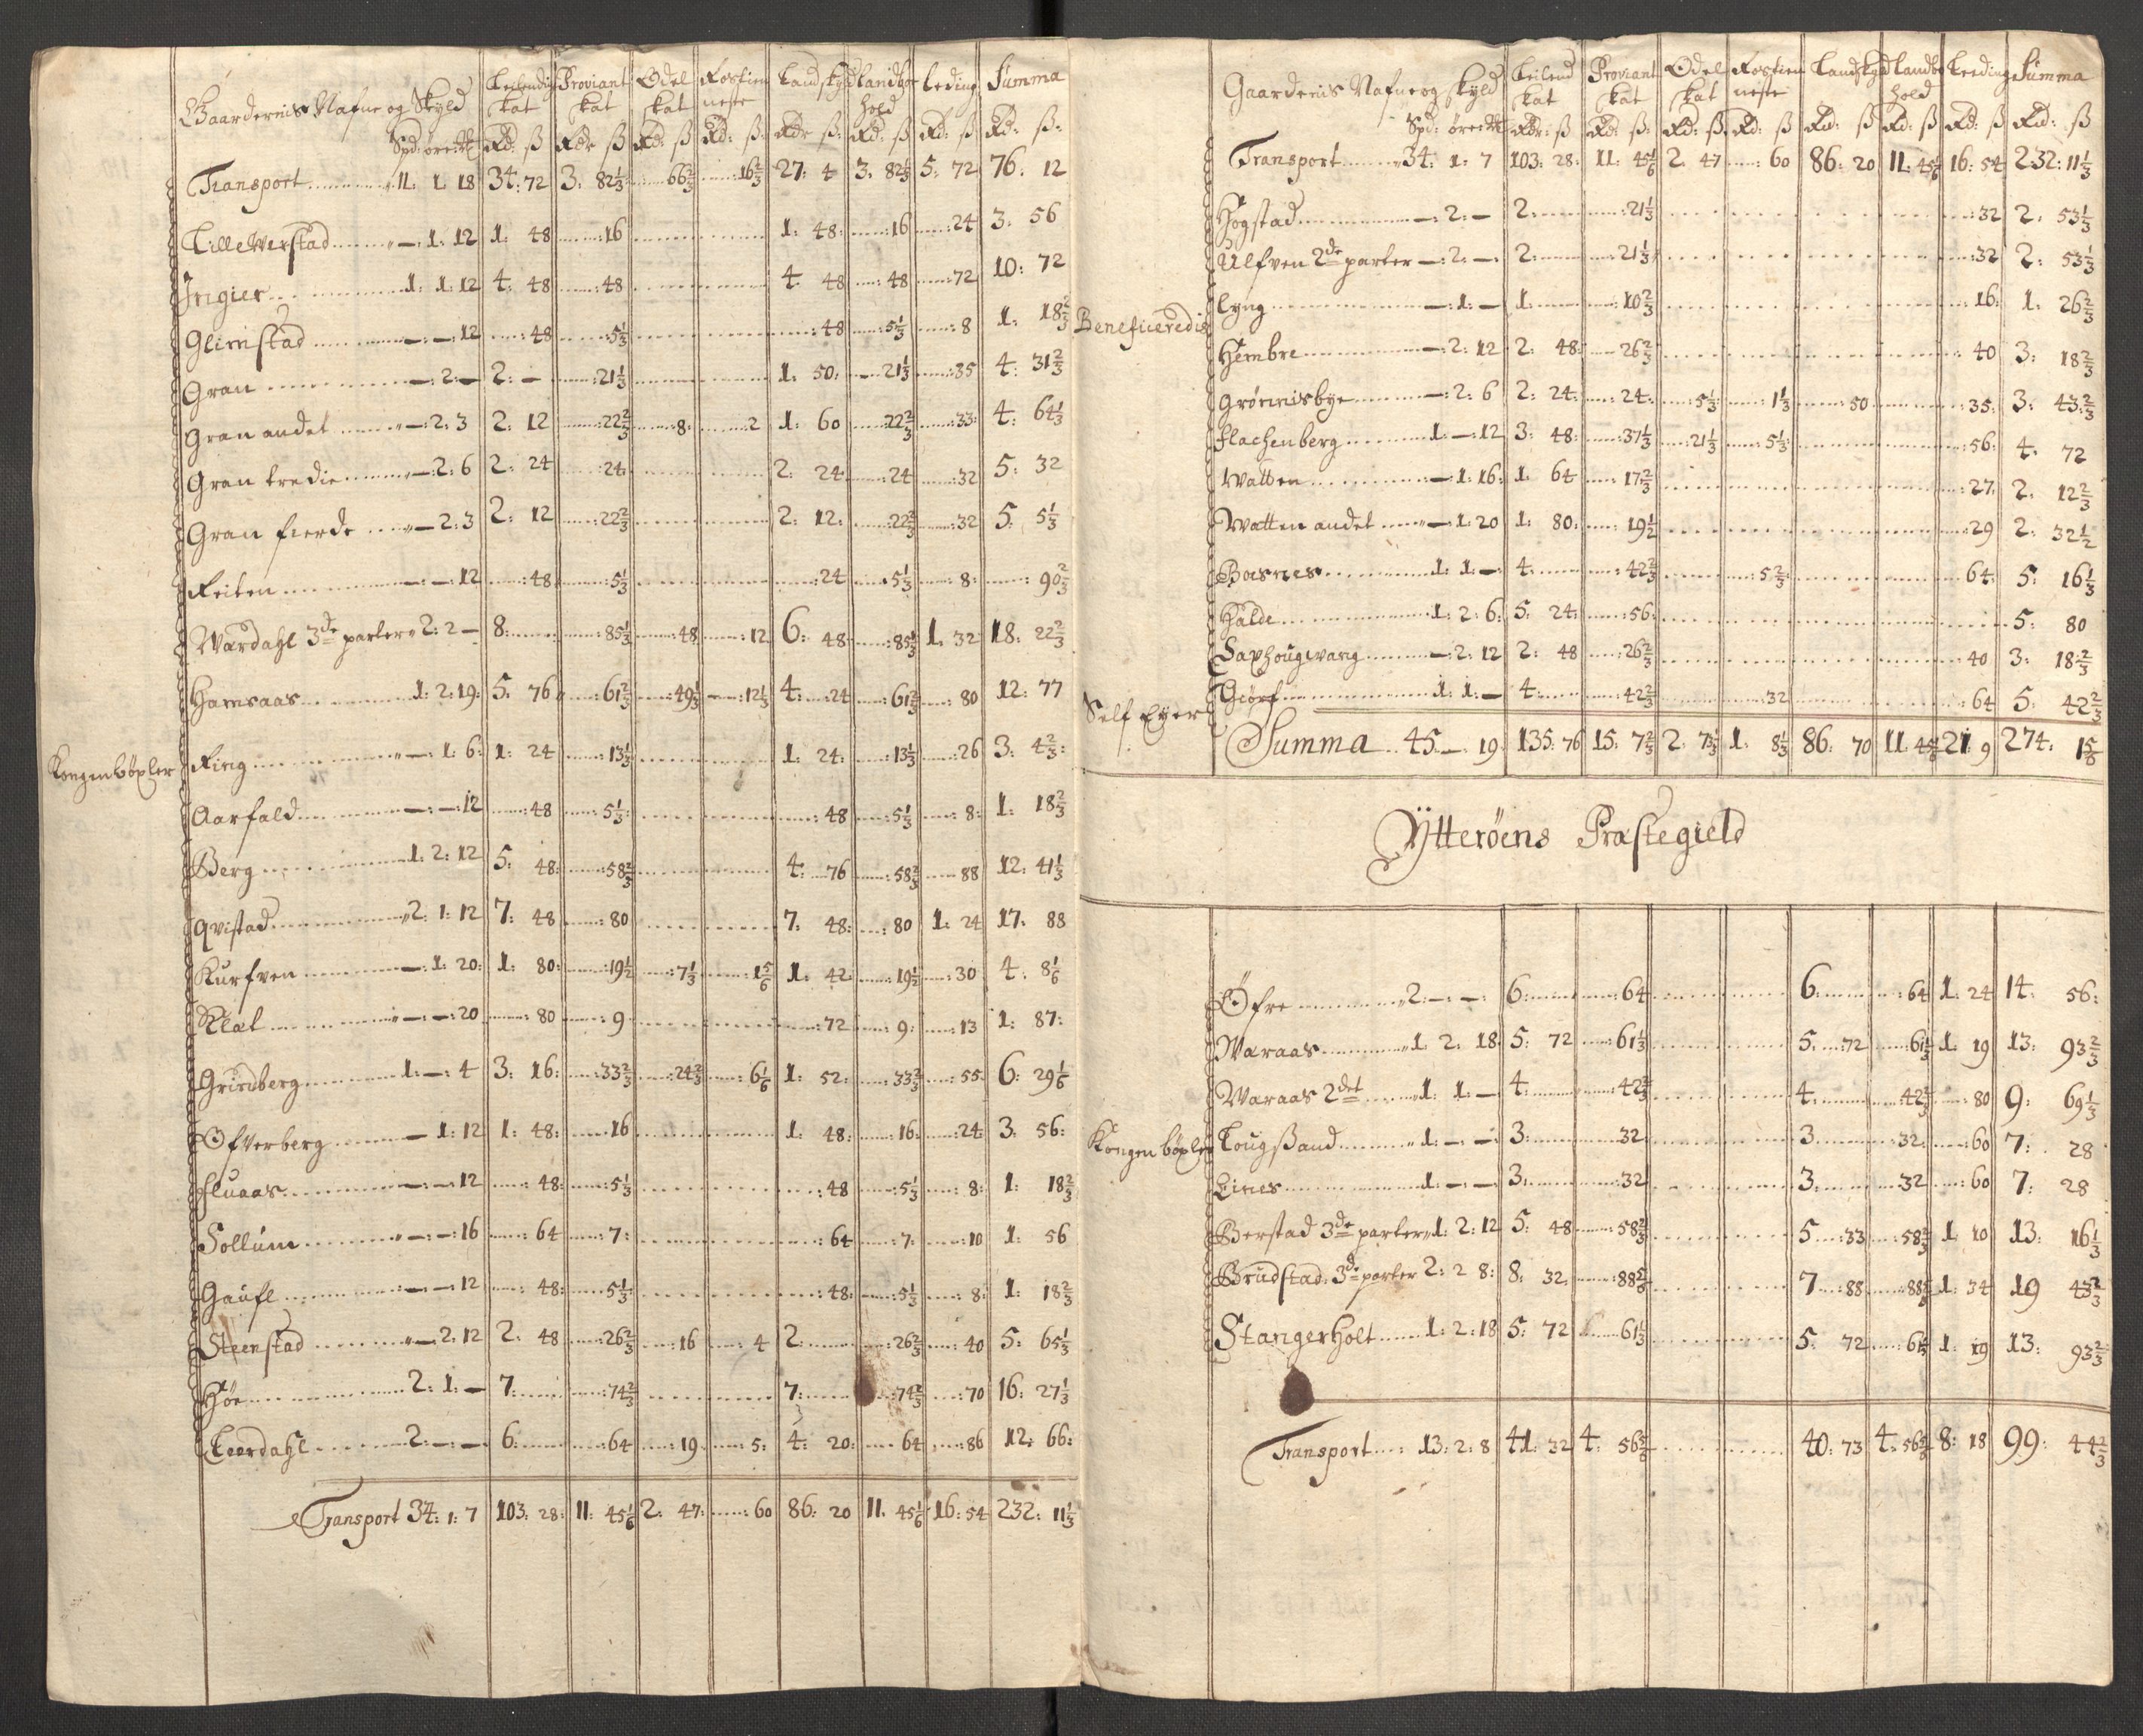 Gaardernis Nafne og Skyld Leilending Skat Proviant Skat Odel Skat Rostien neste Landskyld landbohold leding Summa
Spd: øre mk Rd: ß Rdr ß Rd: ß Rd: ß: Rdr ß: Rd: ß Rd: ß Rd: ß:
Transport 11. 1. 18 34: 72 3: 82 1/3 66 2/3 16 2/3 27: 4 3. 82 1/3 5: 72 76: 12
Lille Werstad —: 1: 12 1: 48 16 1: 48: 16 24 3: 56
Ingier 1: 1: 12 4: 48 48 4 48 48 72 10: 72
Glimstad —:—: 12 48 5 1/3 48 5 1/3 8 1: 18 2/3
Gran —: 2: — 2: — 21 1/3 1: 50: 21 1/3 35 4: 31 2/3
Gran andet —: 2: 3 2: 12 22 2/3 8: 2 1: 60 22 2/3 33: 4: 64 1/3
Gran tredie —: 2: 6 2: 24 24 2: 24 24 32 5: 32
Gran fierde — 2: 3 2: 12 22 2/3 2: 12: 22 2/3 32 5: 5 1/3
Reiten —:—: 12 48 5 1/3 24 5 1/3 8: 90 2/3
Wardahl 3de parter 2: 2 — 8: 85 1/3 48 12 6: 48 85 1/3 1. 32 18: 22 2/3
Hamsaas 1: 2: 19: 5: 76 61 2/3 49 1/3 12 1/3 4: 24 61 2/3 80 12: 77
Kongen bøxler Ring —: 1: 6: 1: 24 13 1/3 1: 24: 13 1/3 26 3: 4 2/3:
Aarfald —:—: 12 48 5 1/3: 48 5 1/3 8: 1: 18 2/3
Berg 1: 2: 12 5: 48: 58 2/3 4: 76 58 2/3 88 12: 41 1/3
Qvistad 2: 1: 12 7: 48 80 7: 48: 80 1: 24 17: 88
Kurfven —: 1: 20: 1: 80: 19 1/2 7 1/3 1 5/6 1: 42: 19 1/2 30 4: 8 1/6
Klat —:—: 20 80 9 72 9: 13 1: 87:
Grindberg 1:—: 4 3: 16: 33 2/3 24 2/3 6 1/6 1: 52: 33 2/3 55 6: 29 1/6
Ofverberg — 1: 12 1: 48: 16 1: 48: 16: 24: 3: 56:
Fluaas —:—: 12 48: 5 1/3 48 5 1/3 8: 1: 18 2/3
Sollum —:—: 16 64 7: 64 7: 10 1: 56
Gaufl —:—: 12 48: 5 1/3 48: 5 1/3 8: 1: 18 2/3
Steenstad — 2: 12 2: 48 26 2/3 16 4 2: 26 2/3 40 5: 65 1/3
Høe 2: 1: — 7: 74 2/3 7: 74 2/3 70 16: 27 1/3
Leerdahl 2:—:— 6: 64 19 5: 4: 20: 64 86 12: 66:
Transport 34: 1: 7 103: 28: 11: 45 1/6 2: 47: 60 86: 20 11. 45 1/6 16: 54 232: 11 1/3
Gaardenis Nafne og Skyld Leilend Skat Proviant Skat Odel Skat Rostien neste Landskyld landbohold Leeding Summa
Spd: øre mk Rdr: ß Rd: ß: Rd: ß: Rd: ß Rd: ß Rd: ß Rd: ß Rd: ß
Transport 34: 1: 7 103: 28: 11: 45 1/6 2. 47 60 86: 20 11: 45 1/6 16: 54 232: 11 1/3
Høgstad —: 2: — 2: 21 1/3 32 2: 53 1/3
Ulfven 2de parter —: 2: — 2: 21 1/3 32 2: 53 1/3
Lyng —: 1: — 1: 10 2/3 16: 1: 26 2/3
Beneficeredis
Hembre —: 2: 12 2: 48: 26 2/3 40 3: 18 2/3
Grønnisbye —: 2: 6 2: 24: 24: 5 1/3 1 1/3 50 35: 3: 43 2/3
Flachenberg 1:—: 12 3: 48: 37 1/3 21 1/3 5 1/3: 56: 4: 72
Watten —: 1: 16: 1: 64 17 2/3 27: 2: 12 2/3
Watten andet —: 1: 20 1: 80: 19 1/2 29 2: 32 1/2
Baasnes 1: 1: — 4: 42 2/3 5 2/3: 64: 5: 16 1/3
Halde 1: 2: 6: 5: 24: 56: 5: 80
Saxhougwang —: 2: 12 2: 48 26 2/3 40 3: 18 2/3
Self Eyer Giørf 1: 1: — 4: 42 2/3 32 64 5: 42 2/3
Summa 45 — 19 135: 76 15: 7 2/3 2: 73 1/3 1: 8 1/3 86: 70 11: 45 1/6 21: 9 274: 1 5/6
Ytterøens Præstegield
Øfre 2:—:— 6: 64 6: 64 1: 24 14: 56:
Waraas 1: 2: 18 5: 72 61 1/3 5: 72 61 1/3 1: 19 13: 93 2/3
Waraas 2det 1: 1: — 4: 42 2/3 4: 42 2/3 80 9: 69 1/3
Kongen bøxler Lougßand 1:—:— 3: 32 3: 32: 60 7: 28
Lines 1:—:— 3: 32 3: 32 60 7: 28
Berstad 3de parter 1: 2: 12 5: 48 58 2/3 5: 33 58 2/3 1: 10 13: 16 1/3
Brudstad: 3de parter 2: 2 8: 8: 32 88 5/6 7: 88 88 5/6 1: 34 19 45 2/3
Stangerholt 1: 2: 18 5: 72 61 1/3 5: 72 61 1/3 1: 19 13: 93 2/3
Transport 13: 2: 8 41: 32 4: 56 5/6 40: 73 4: 56 5/6 8: 18 99: 44 2/3